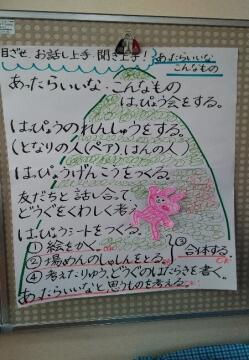 目ざせ お話し上手・聞き上手!
あったらいいな
こんなもの
あったらいいな・こんなもの
はっぴょう会をする。
はっぴょうのれんしゅうをする。
(となりの人(ペア)、はんの人)
はっぴょうげんこうをつくる。
友だちと話し合って、
どうぐをくわしく考
はっぴょうシートをつくる。
①絵をかく。
合体する
②場めんのしゃしんをとる。
④考えたりゆう、どうぐのはたらきを書く。
あったらいいなと思うものを考える。